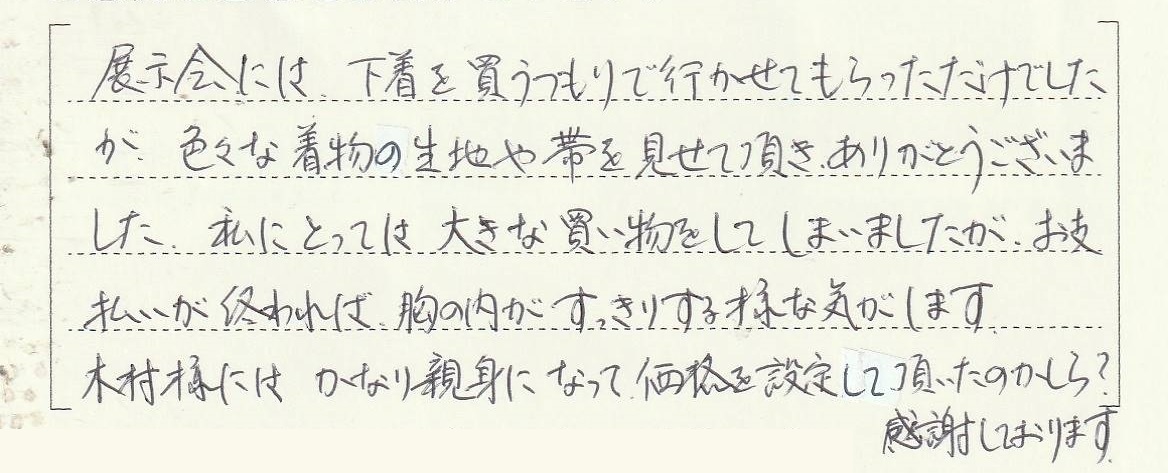 展示会には、下着を買うつもりで行かせてもらっただけでした
が、色々な着物の生地や帯を見せて頂き、ありがとうございま
した。私にとっては大きな買い物をしてしまいましたが、お支
払いが終われば、胸の内がすっきりする様な気がします。
木村様にはかなり親身になって、価格を設定して頂いたのかしら?
感謝しております。